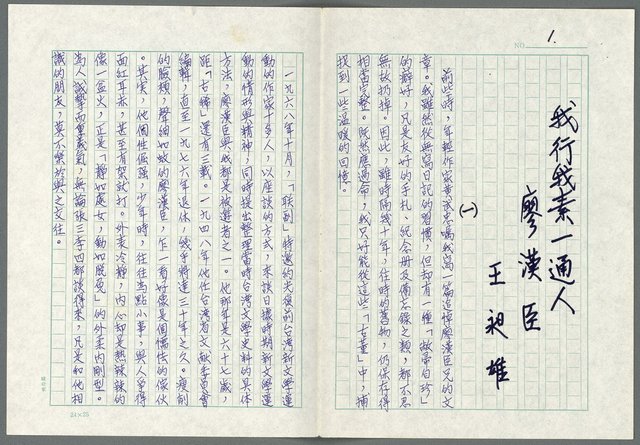 1.
NO
我行我素一通人
廖漢臣
王昶雄
(一)
前些時,年輕作家黃武忠囑我寫一篇追悼廖漢臣兄的文
章。我雖然從無寫日記的習慣,但却有一種「敝帚自珍」
的癖好,凡是友好的手札、紀念册及備忘錄之類,都不忍
無故扔掉。因此,雖時隔幾十年,往時的舊物,仍保存得
相當完整。既然應過命,我只好能從這些「古董」中,捕
找到一些溫暖的回憶。
一九六八年十月,「聯副」特邀約光復前台灣新文學運
動的作家十多人,以座談的方式,來談日據時期新文學運
動的情形與精神,同時提出整理當時台灣文學史料的具体
方法,廖漢臣與我都是被選者之一。他那年是六十七歲,
距「古稀」還有三載。一九四八年他任台灣省文獻委員會
編輯,直至一九七六年退休,幾乎將達三十年之久。瘦削
的臉頰,聲細如蚊的廖漢臣,乍一看好像是個懦怯的傢伙
。其實,他個性倔强,少年時,往往為點小事,與人爭得
面紅耳赤,甚至有架就打。外表冷靜,內心却是熱辣辣的
像一盆火,正是「靜如處女,動如脫兔」的外柔內剛型。
為人誠摯而重義氣,無論張三李四都談得來,凡是和他相
識的朋友,莫不樂於與之交往。
24×25